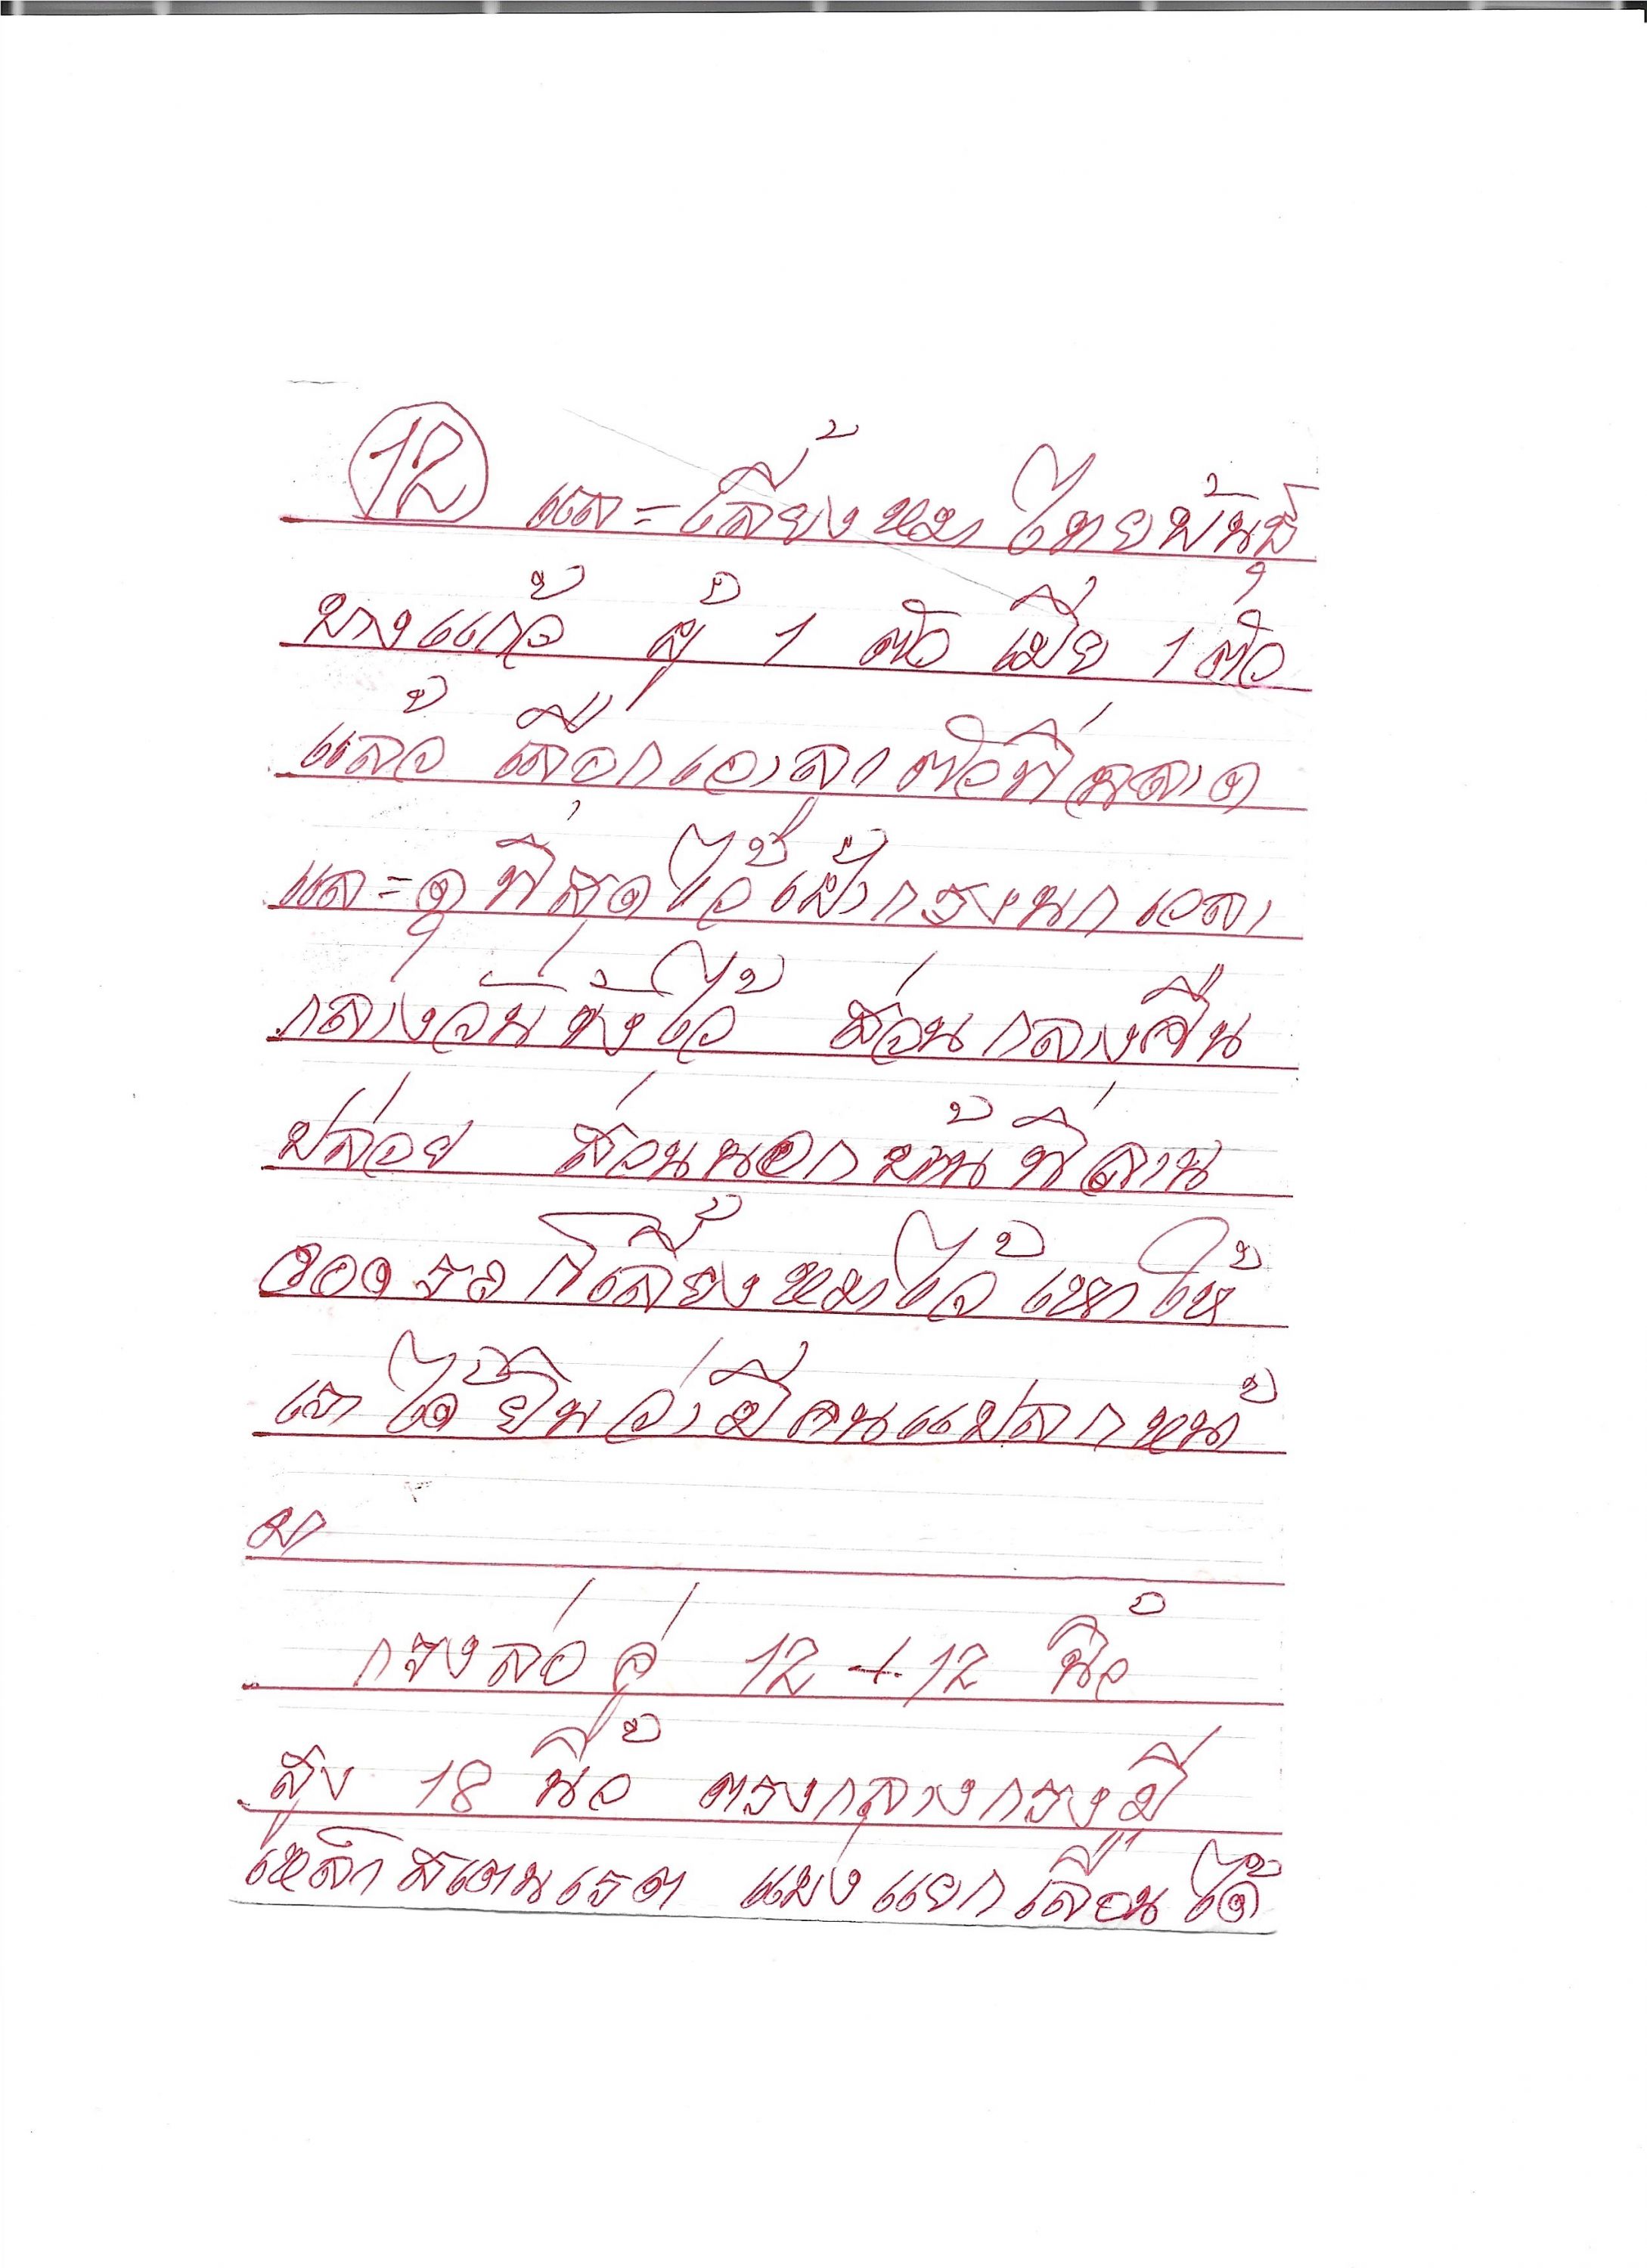 12 และเลี้ยงหมาไทยพันธุ์
บางแก้ว ผู้ 1 ตัว เมีย 1 ตัว
แล้ว เลือกเอาเอาตัวที่ฉลาด
และดุที่สุดไว้เฝ้ากรงนก เวลา
กลางวันขังไว้ ส่วนกลางคืน
ปล่อย ส่วนนอกบ้านที่ลาน
จอดรถก็เลี้ยงหมาไว้เห่าให้
เราได้ยินว่ามีคนแปลกหน้า
มา
กรงล่อคู่ 12 + 12 นิ้ว
สูง 18 นิ้ว ตรงกลางกรงมี
เหล็กสแตนเรต แบ่งแยกเลื่อนได้